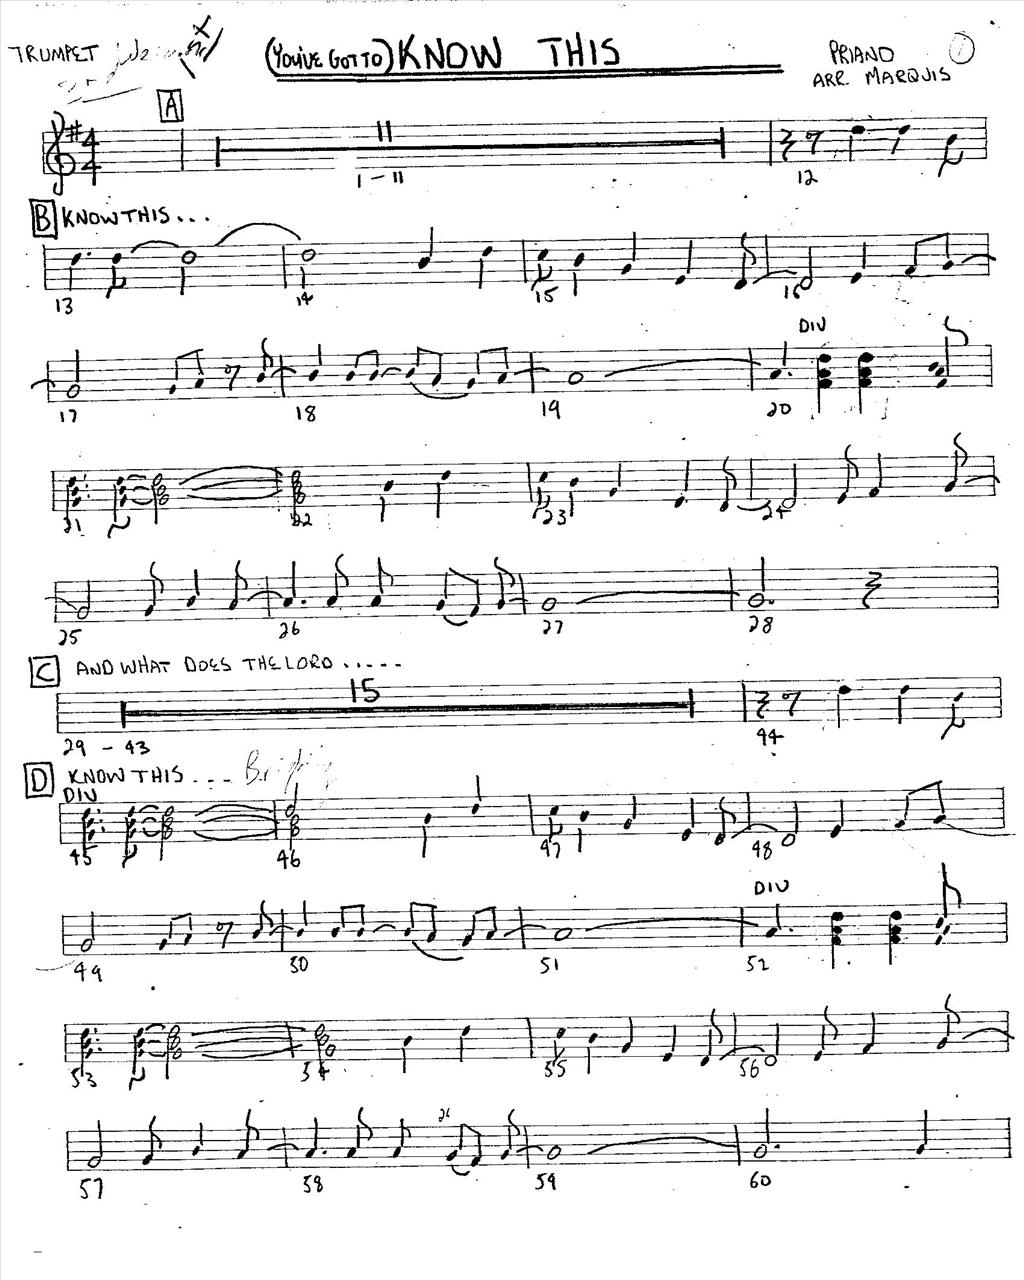 TRUMPET 1st (YOU'VE GOT TO) KNOW THIS PRIANO 1
ARR. MARQUIS
A
4 4 11
1-11 12
B KNOW THIS...
13 14 15 16
DIV
17 18 19 20
21 22 23 24
25 26 27 28
C AND WHAT DOES THE LORD.....
15
29 - 43 44
D KNOW THIS...
DIV
45 46 47 48
DIV
49 50 51 52
53 54 55 56
57 58 59 60